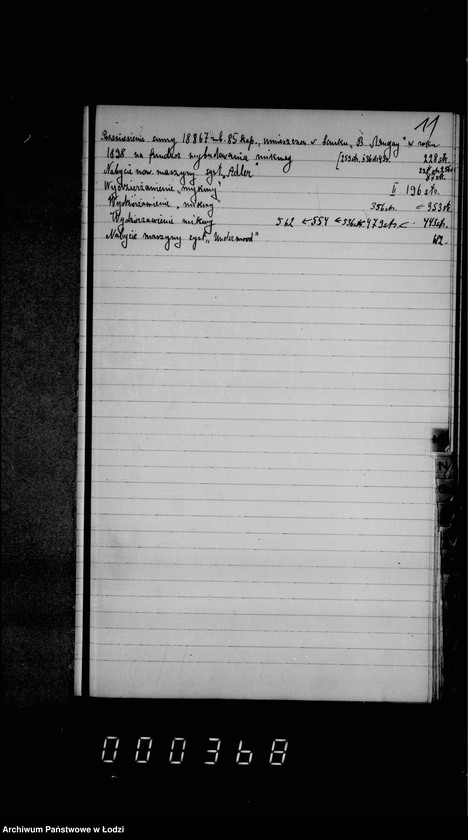 11
Przeniesienie sumy 18867 rb. 85 kop., umieszczon. w banku, "B. " w roku
1898 na fundusz wybudowania mikwy 228 str.
Nabycie now. maszyny syst. "Adler"
Wydzierżawienie "mykwy" II 196 str.
Wydzierżawienie "mikwy 336 str. < 353 str.
Wydzierżawienie mikwy 562 < 554 < 536 str. 479 str. < 445 str.
Nabycie maszyny syst. "Underwood" 612.
000368
Archiwum Państwowe w Łodzi